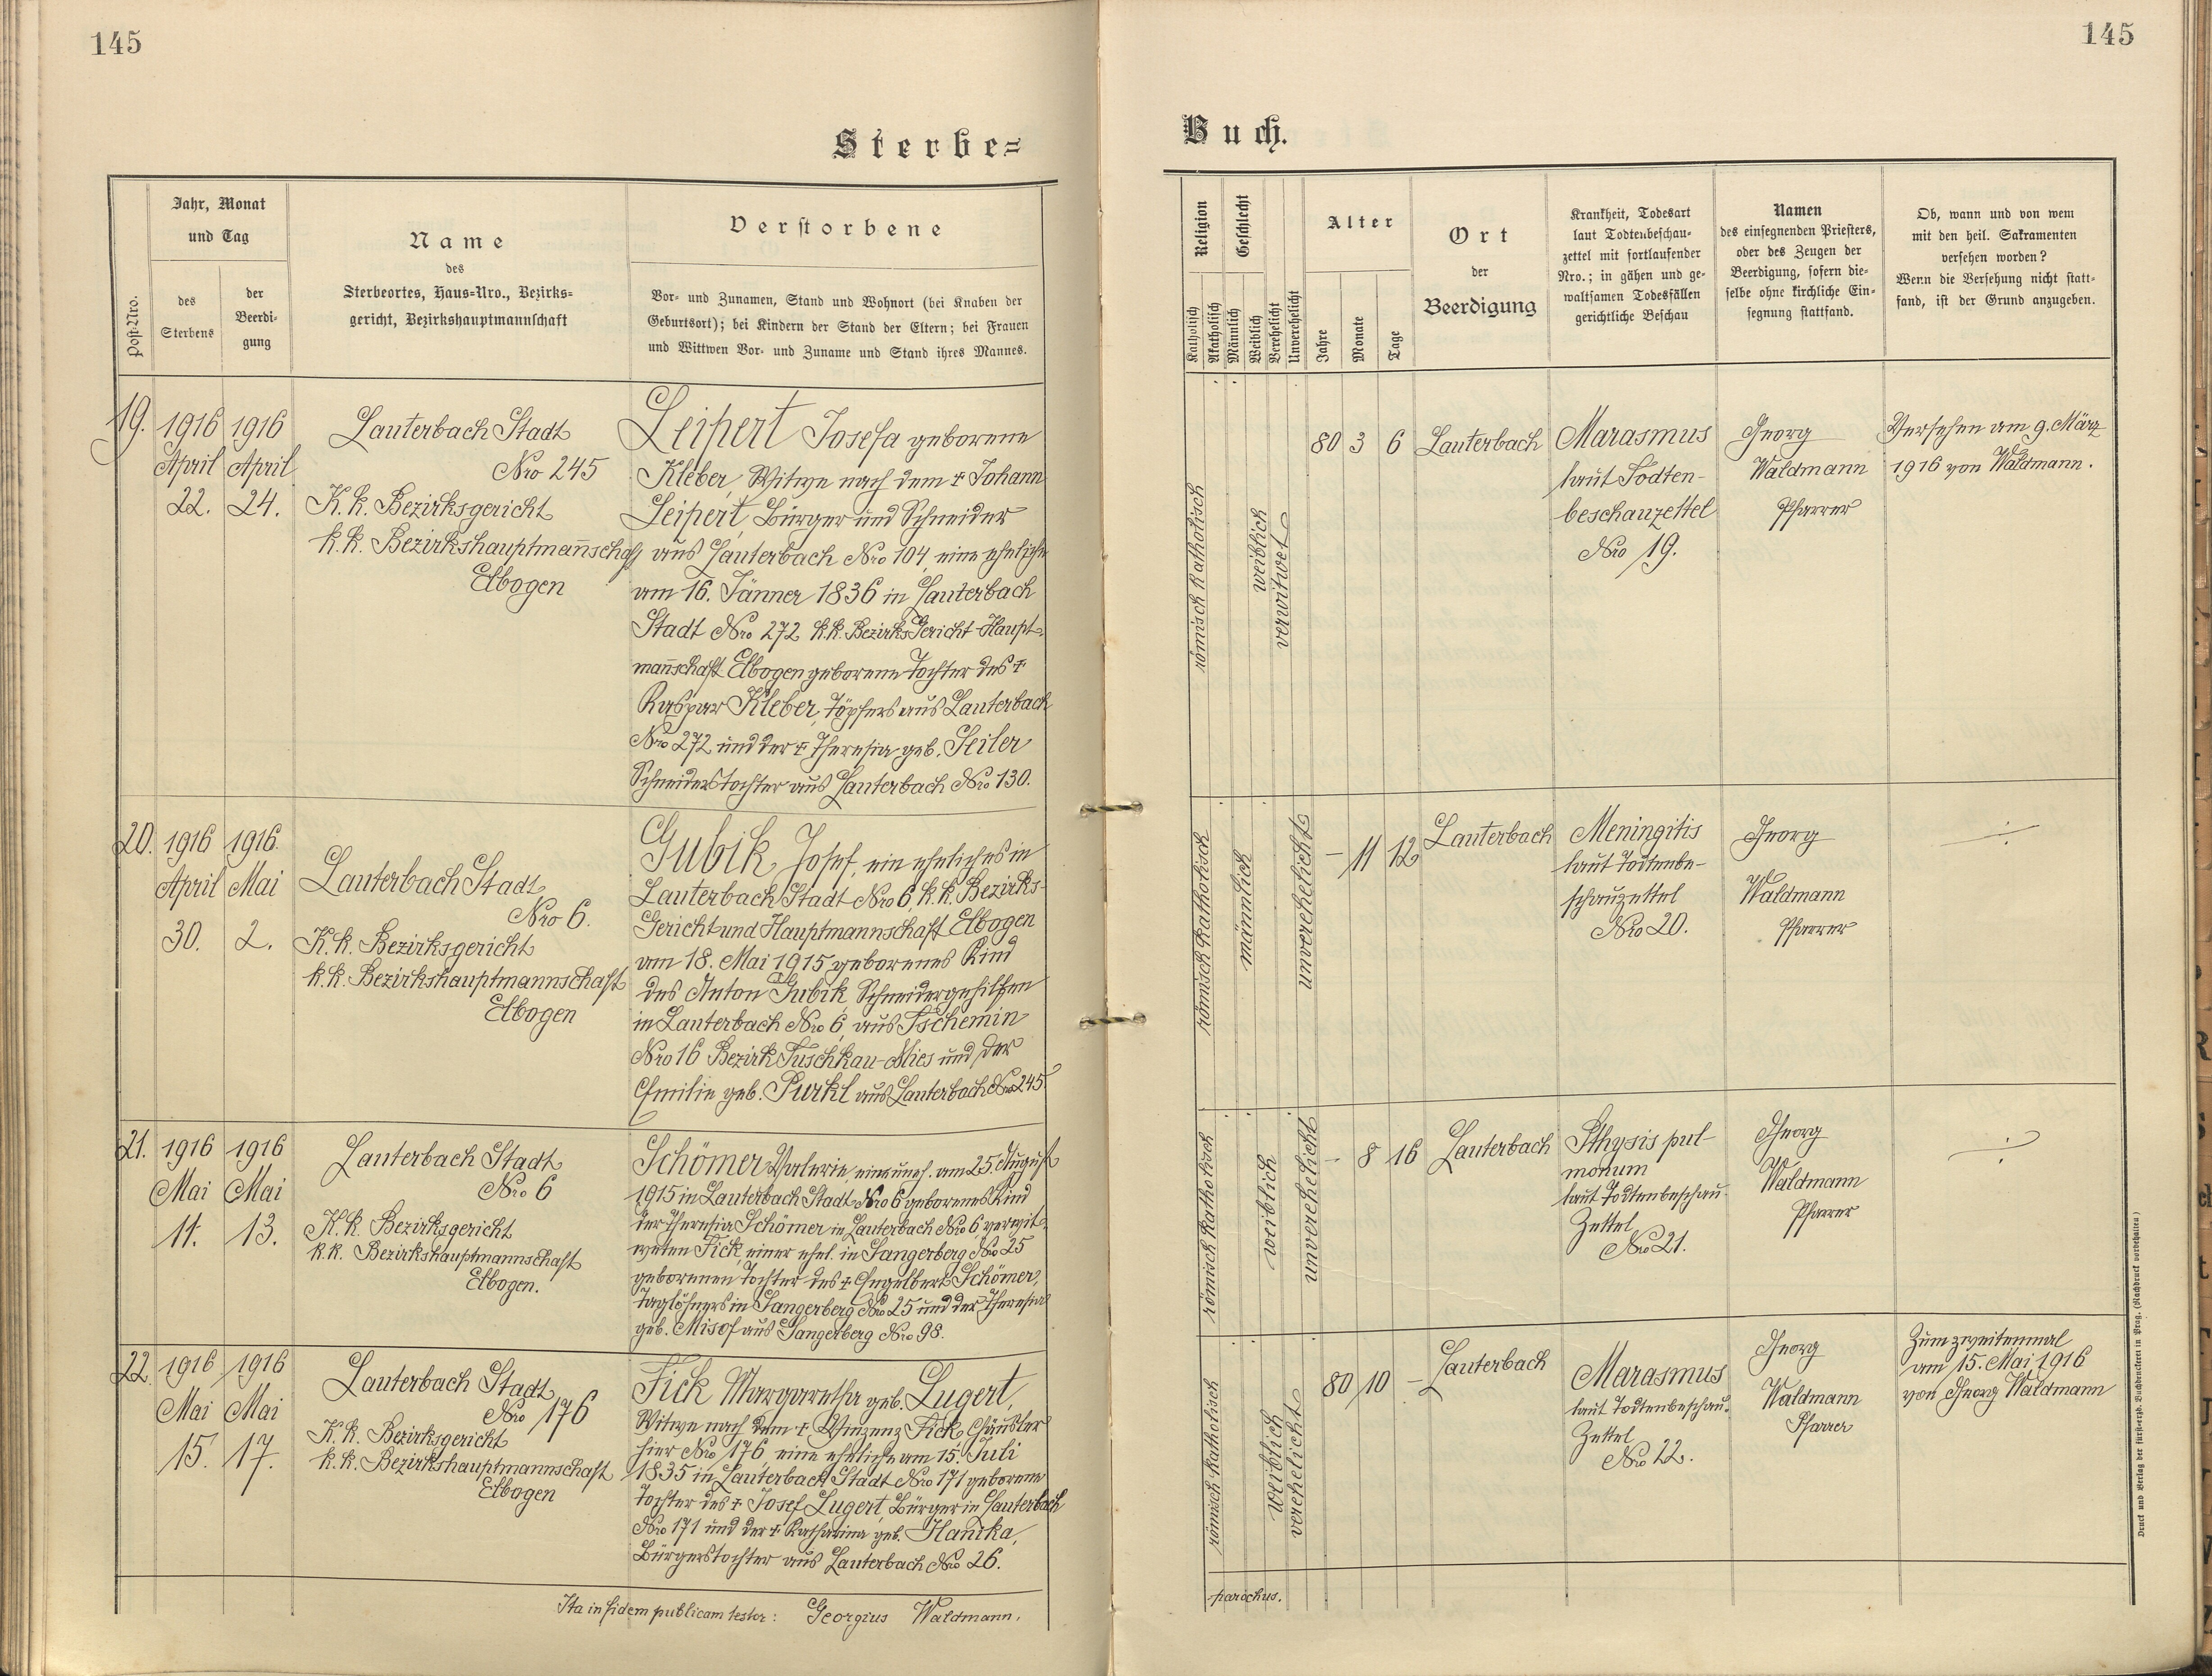 145
145
Sterbe=
Buch.
Post-Nro.
Jahr, Monat
und Tag
des
Sterbens
der
Beerdi-
gung
Name
des
Sterbeortes, Haus=Nro., Bezirks=
gericht, Bezirkshauptmannschaft
Verstorbene
Vor- und Zunamen, Stand und Wohnort (bei Knaben der
Geburtsort); bei Kindern der Stand der Eltern; bei Frauen
und Wittwen Vor- und Zuname und Stand ihres Mannes.
Religion
Katholisch
Akatholisch
Geschlecht
Männlich
Weiblich
Verehelicht
Unverehelicht
Alter
Jahre
Monate
Tage
Ort
der
Beerdigung
Krankheit, Todesart
laut Todtenbeschau-
zettel mit fortlaufender
Nro.; in gähen und ge-
waltsamen Todesfällen
gerichtliche Beschau
Namen
des einsegnenden Priesters,
oder des Zeugen der
Beerdigung, sofern die-
selbe ohne kirchliche Ein-
segnung stattfand.
Ob, wann und von wem
mit den heil. Sakramenten
versehen worden?
Wenn die Versehung nicht statt-
fand, ist der Grund anzugeben.
19.
1916
April
22.
1916
April
24.
Lauterbach Stadt
Nro 245
K. k. Bezirksgericht
k. k. Bezirkshauptmañschaft
Elbogen
Leipert Josefa geborene
Kleber, Witwe nach dem † Johann
Leipert, Bürger und Schneider
aus Lauterbach Nro 104, eine eheliche
am 16. Jänner 1836 in Lauterbach
Stadt Nro 272 k. k. Bezirks Gericht-Haupt-
mañschaft Elbogen geborene Tochter des †
Kaspar Kleber, Töpfers aus Lauterbach
Nro 272 und der † Theresia geb. Seiler
Schneiderstochter aus Lauterbach Nro 130.
römisch katholisch
weiblich
verwitwet
80 3 6
Lauterbach
Marasmus
laut Todten-
beschauzettel
Nro 19.
Georg
Waldmann
Pfarrer
Versehen am 9. März
1916 von Waldmann.
20.
1916
April
30.
1916
Mai
2.
Lauterbach Stadt
Nro 6.
K. k. Bezirksgericht
k. k. Bezirkshauptmannschaft
Elbogen
Gubik, Josef, ein eheliches in
Lauterbach Stadt Nro 6, k. k. Bezirks-
Gericht und Hauptmannschaft Elbogen
am 18. Mai 1915 geborenes Kind
des Anton Gubik Schneidergehilfen
in Lauterbach Nro 6, aus Tschemin
Nro 16 Bezirk Tuschkau-Mies und der
Emilie geb. Purkl aus Lauterbach Nro 245.
römisch katholisch
männlich
unverehelicht
– 11 12
Lauterbach
Meningitis
laut Todtenbe-
schauzettel
Nro 20.
Georg
Waldmann
Pfarrer
÷
21.
1916
Mai
11.
1916
Mai
13.
Lauterbach Stadt
Nro 6
K. k. Bezirksgericht
k. k. Bezirkshauptmannschaft
Elbogen.
Schömer Valerie, ein uneh. am 25. August
1915 in Lauterbach Stadt Nro 6 geborenes Kind
der Theresia Schömer in Lauterbach Nro 6, verwit-
weten Fick, einer ehel. in Sangerberg Nro 25
geborenen Tochter des † Engelbert Schömer,
Taglöhners in Sangerberg Nro 25 und der Theresia
geb. Misof aus Sangerberg Nro 98.
römisch katholisch
weiblich
unverehelicht
– 8 16
Lauterbach
Phthysis pul-
monum
laut Todtenbeschau-
Zettel
Nro 21.
Georg
Waldmann
Pfarrer
÷
22.
1916
Mai
15.
1916
Mai
17.
Lauterbach Stadt
Nro 176
K. k. Bezirksgericht
k. k. Bezirkshauptmannschaft
Elbogen
Fick Margaretha geb. Lugert,
Witwe nach dem † Vinzenz Fick, Häusler
hier Nro 176, eine eheliche am 15. Juli
1835 in Lauterbach Stadt Nro 171 geborene
Tochter des † Josef Lugert, Bürger in Lauterbach
Nro 171 und der † Katharina geb. Hanika,
Bürgerstochter aus Lauterbach Nro 26.
römisch katholisch
weiblich
verehelicht
80 10 –
Lauterbach
Marasmus
laut Todtenbeschau-
Zettel
Nro 22.
Georg
Waldmann
Pfarrer
Zum zweitenmal
am 15. Mai 1916
von Georg Waldmann
Ita in fidem publicam testor: Georgius Waldmann,
parochus.
Druck und Verlag der fürsterzb. Buchdruckerei in Prag. (Nachdruck vorbehalten.)